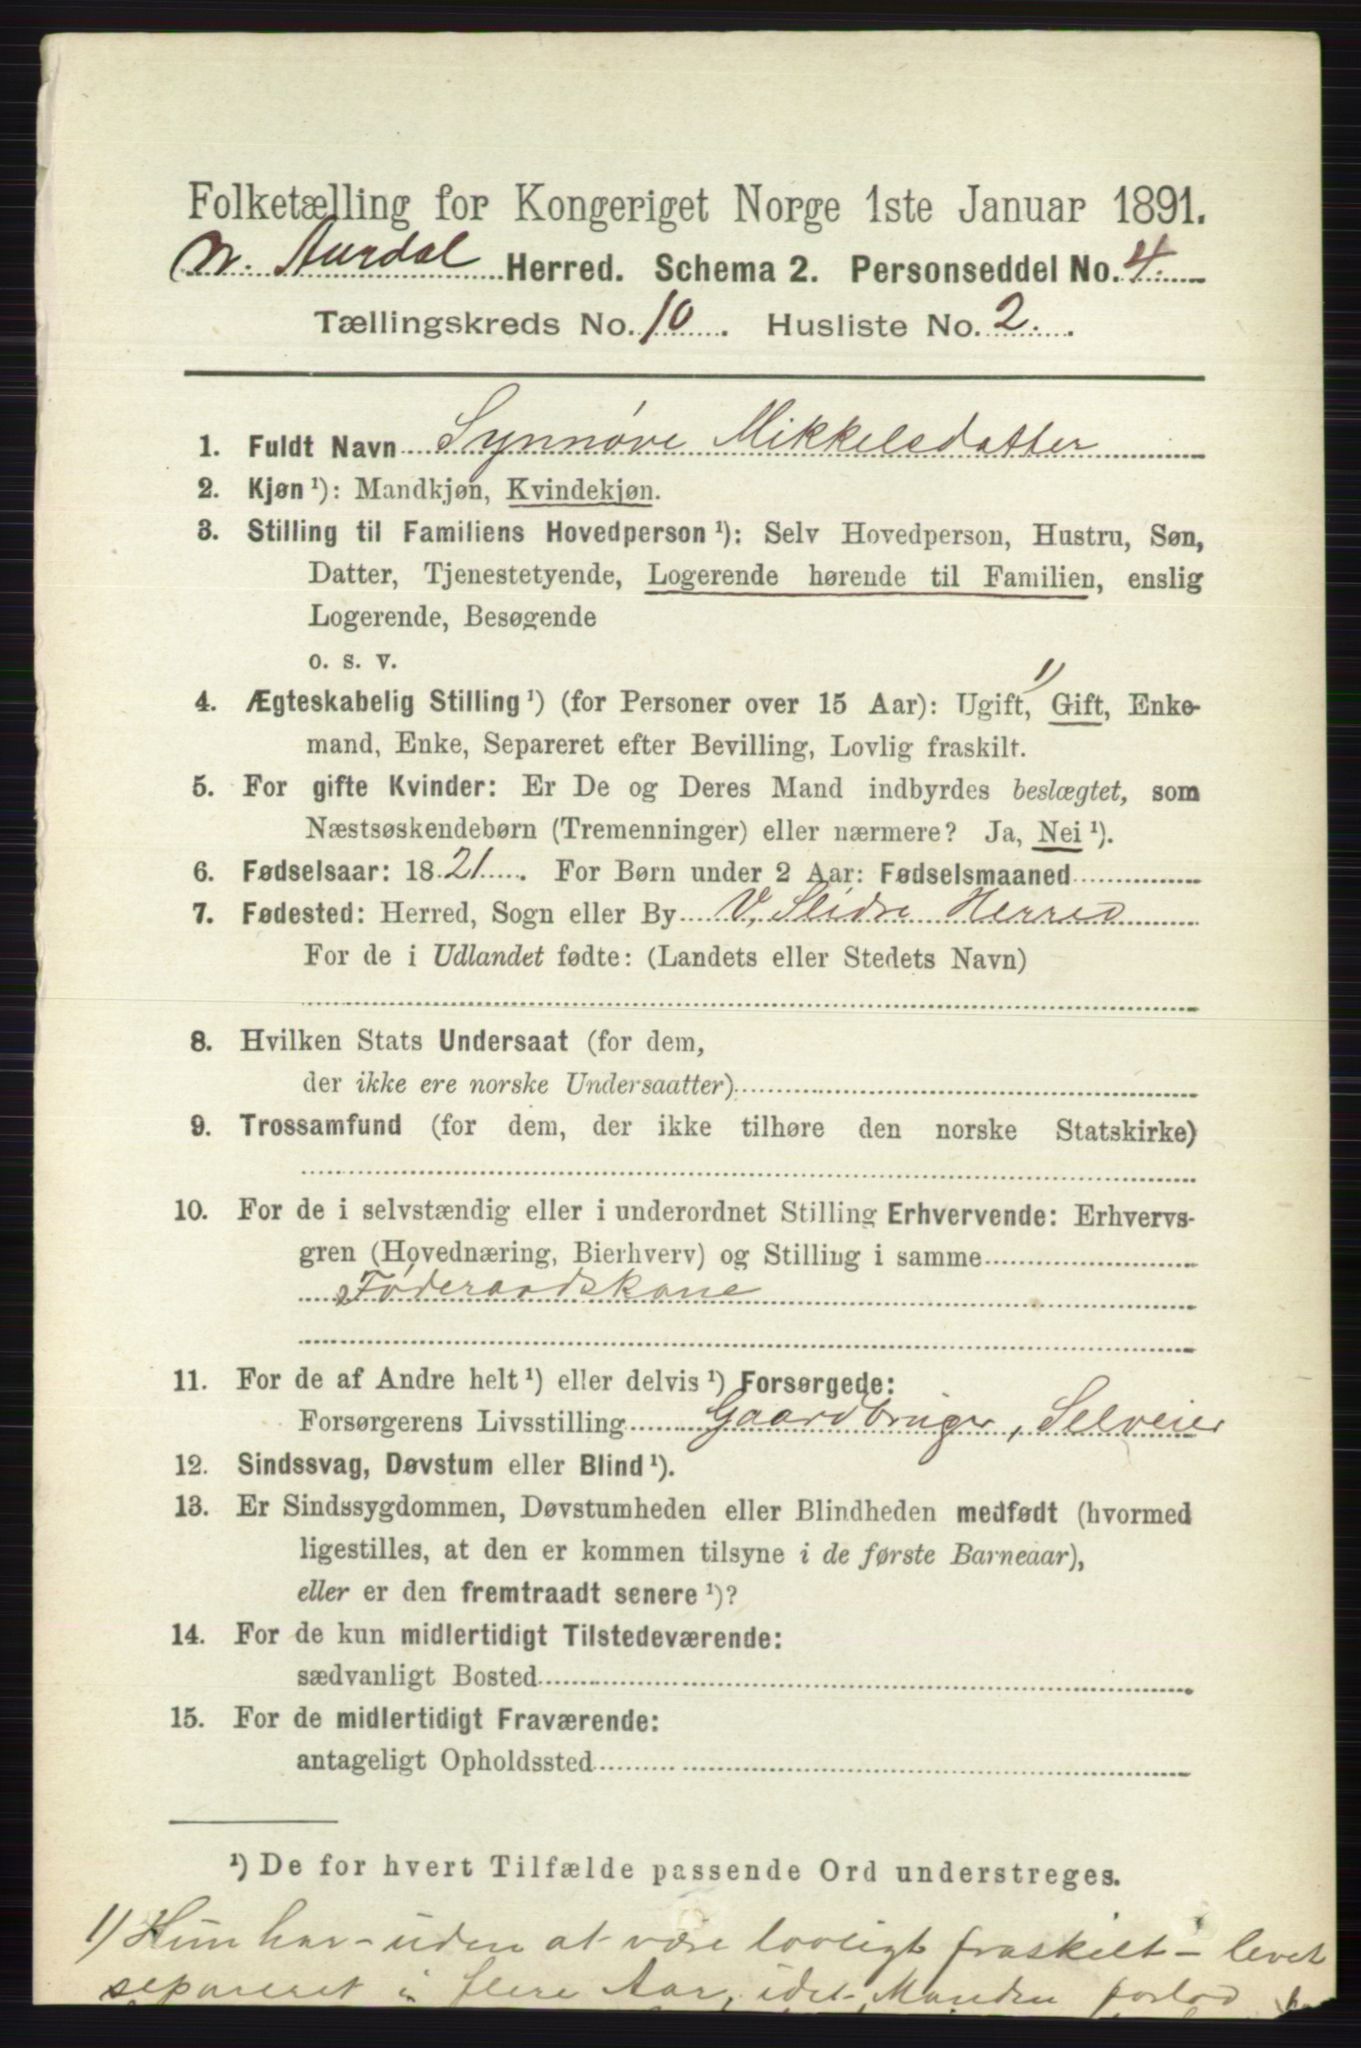 Folketælling for Kongeriget Norge 1ste Januar 1891.
N. Aurdal Herred. Schema 2. Personseddel No. 4.
Tællingskreds No. 10. Husliste No. 2.
1. Fuldt Navn Synnøve Mikkelsdatter
2. Kjøn ¹): Mandkjøn, Kvindekjøn.
3. Stilling til Familiens Hovedperson ¹): Selv Hovedperson, Hustru, Søn,
Datter, Tjenestetyende, Logerende hørende til Familien, enslig
Logerende, Besøgende
o. s. v.
1)
4. Ægteskabelig Stilling ¹) (for Personer over 15 Aar): Ugift, Gift, Enke-
mand, Enke, Separeret efter Bevilling, Lovlig fraskilt.
5. For gifte Kvinder: Er De og Deres Mand indbyrdes beslægtet, som
Næstsøskendebørn (Tremenninger) eller nærmere? Ja, Nei ¹).
6. Fødselsaar: 1821. For Børn under 2 Aar: Fødselsmaaned
7. Fødested: Herred, Sogn eller By V. Slidre Herred
For de i Udlandet fødte: (Landets eller Stedets Navn)
8. Hvilken Stats Undersaat (for dem,
der ikke ere norske Undersaatter)
9. Trossamfund (for dem, der ikke tilhøre den norske Statskirke)
10. For de i selvstændig eller i underordnet Stilling Erhvervende: Erhvervs-
gren (Hovednæring, Bierhverv) og Stilling i samme
Føderaadskone
11. For de af Andre helt ¹) eller delvis ¹) Forsørgede:
Forsørgerens Livsstilling Gaardbruger, Selveier
12. Sindssvag, Døvstum eller Blind ¹).
13. Er Sindssygdommen, Døvstumheden eller Blindheden medfødt (hvormed
ligestilles, at den er kommen tilsyne i de første Barneaar),
eller er den fremtraadt senere ¹)?
14. For de kun midlertidigt Tilstedeværende:
sædvanligt Bosted
15. For de midlertidigt Fraværende:
antageligt Opholdssted
¹) De for hvert Tilfælde passende Ord understreges.
1) Hun har - uden at være lovligt fraskilt - levet
separeret i flere Aar, idet Manden forlod